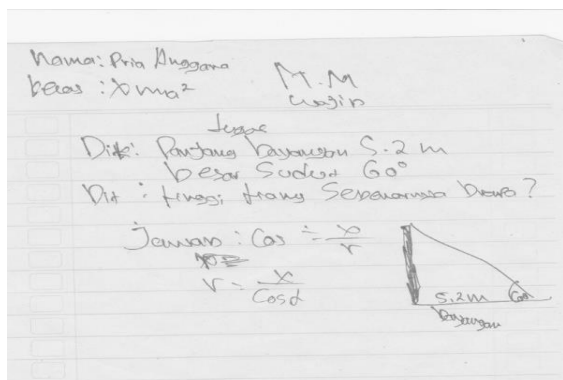 Nama: Pria Anggana
Kelas : X ma²
M.M
Wajib
Tugas
Dik: Panjang bayangan 5.2 m
besar Sudut 60°
Dit : tinggi tiang Sebenarnya brapa?
Jawab : Cos = x/r
r = x/Cosα
5.2m
bayangan